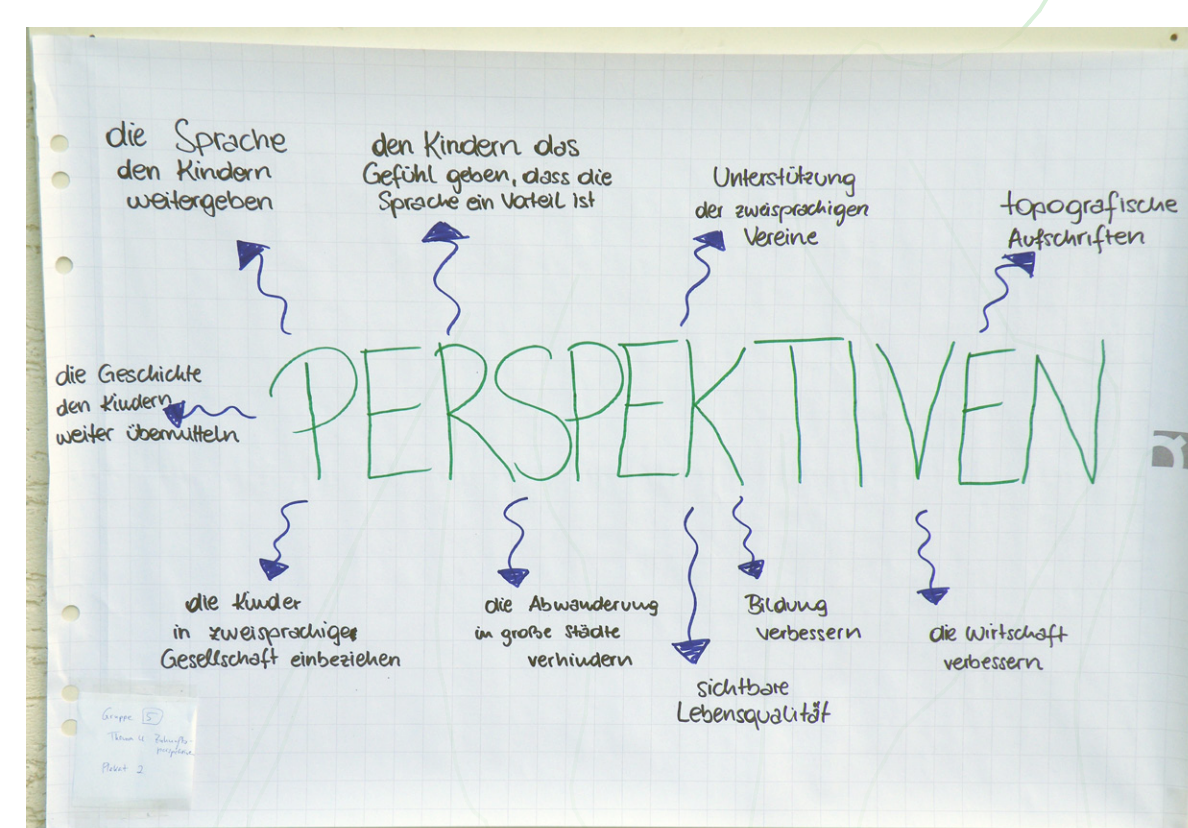 die Sprache
den Kindern
weitergeben
den Kindern das
Gefühl geben, dass die
Sprache ein Vorteil ist
Unterstützung
der zweisprachigen
Vereine
topografische
Aufschriften
PERSPEKTIVEN
die Geschichte
den Kindern
weiter übermitteln
die Kinder
in zweisprachige
Gesellschaft einbeziehen
die Abwanderung
in große Städte
verhindern
sichtbare
Lebensqualität
Bildung
verbessern
die Wirtschaft
verbessern
Gruppe 5
Thema 4 Zukunfts-
perspektive
Plakat 2